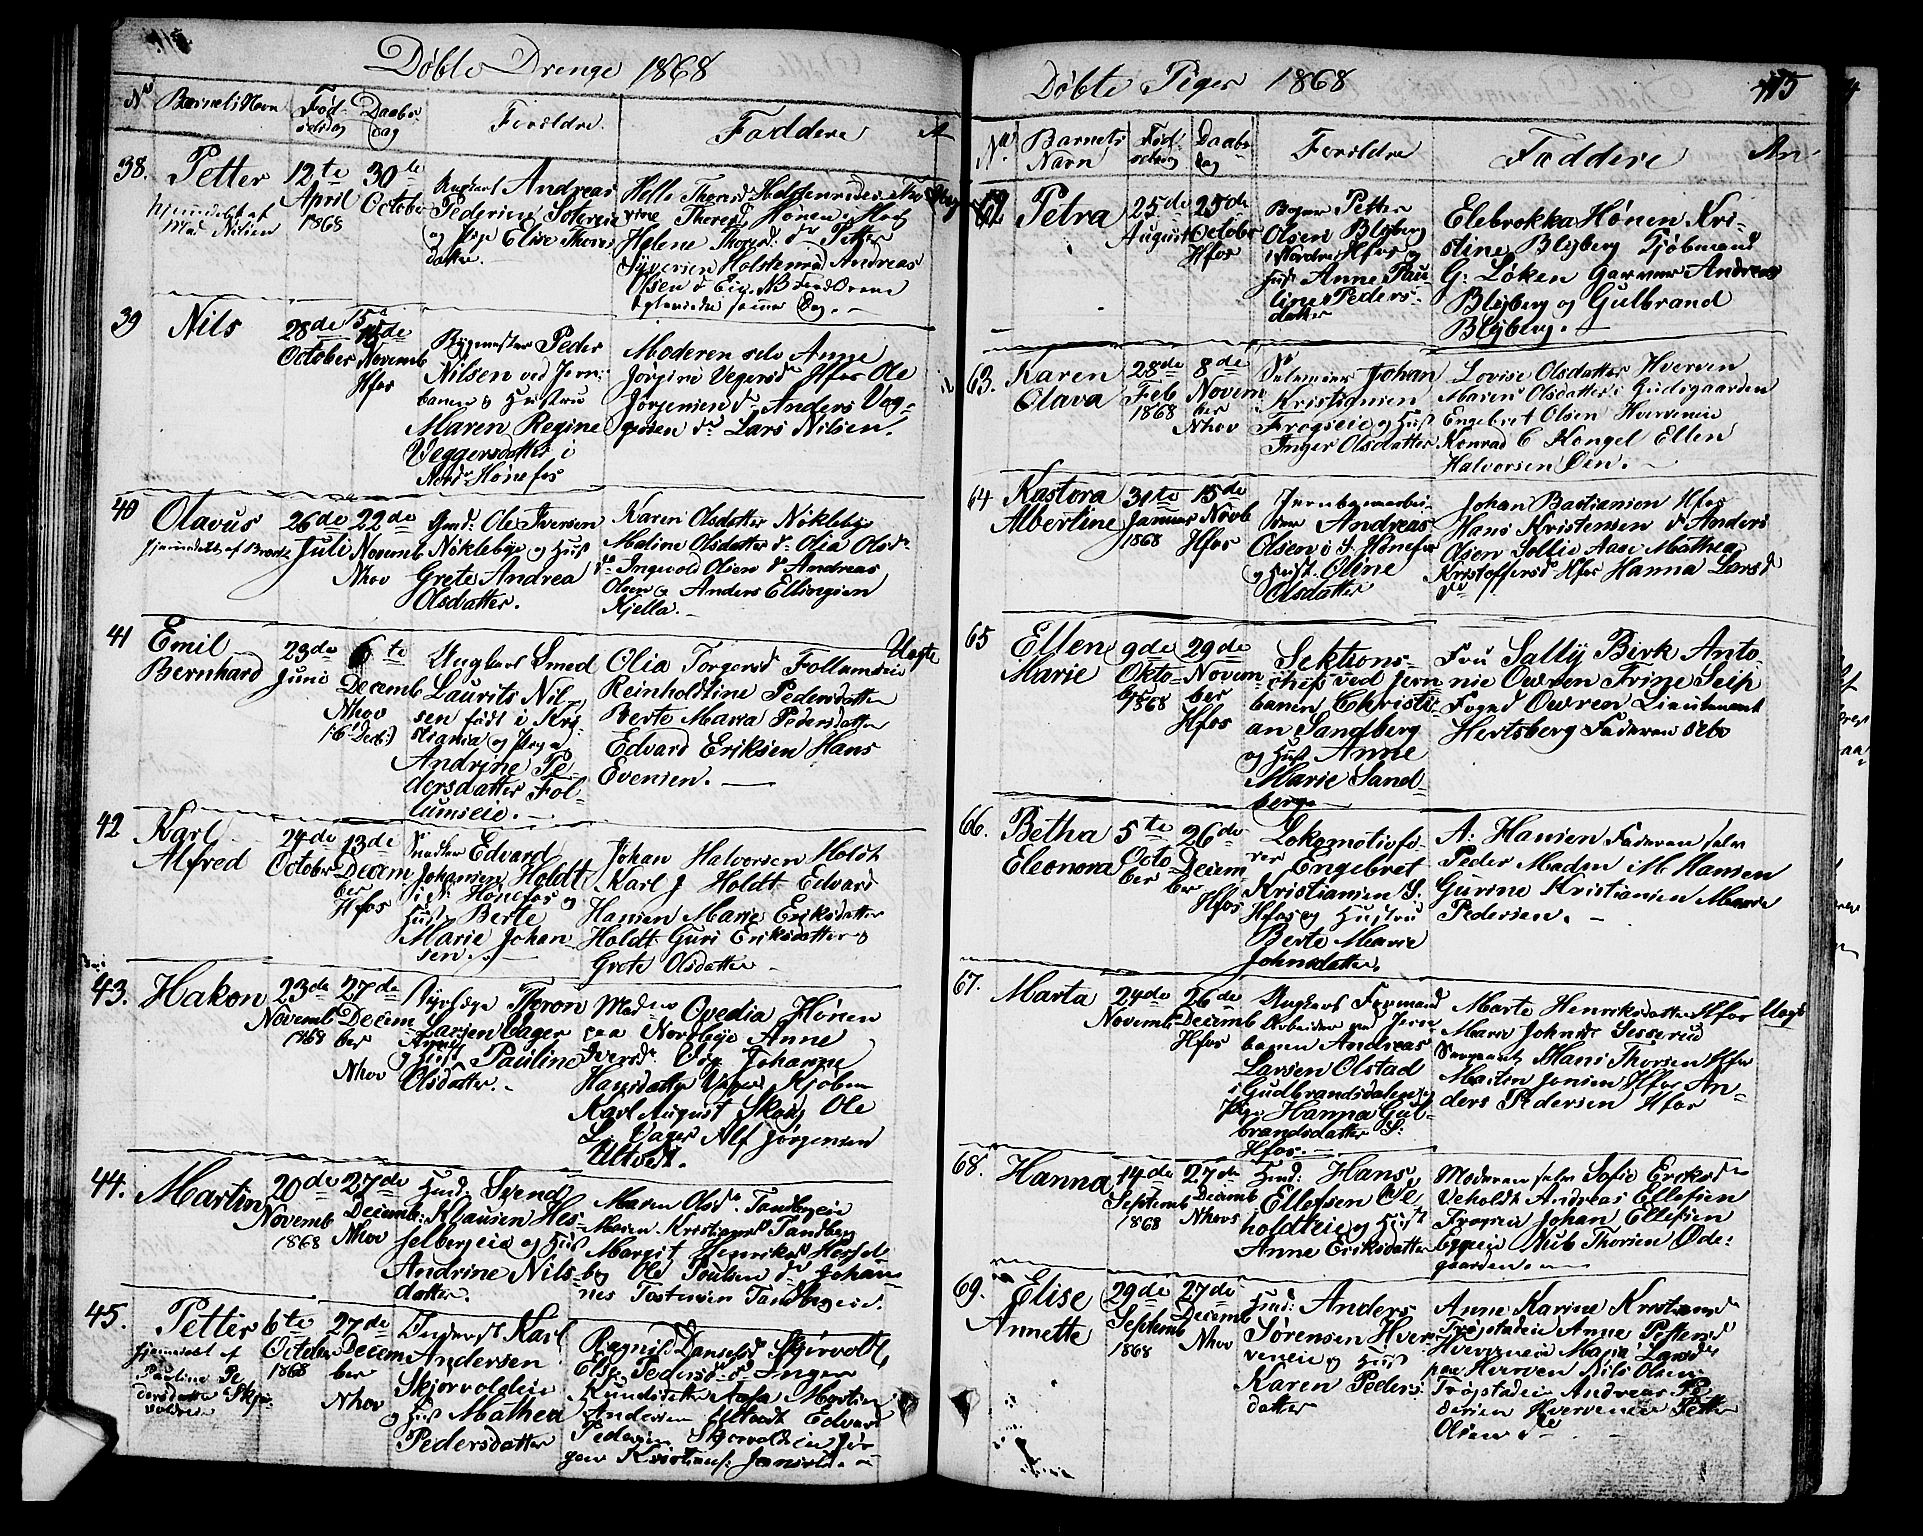 Döbte Drenge 1868
No Barnets Navn Fødselsdag Daabsdag Forældre Faddere
38.
Petter
hjemmedøbt af
Mad Nilsen
12te
April
1868
30te
October
Ungkarl Andreas
Pedersen
og Pige Elise Thores
datter.
Helle Thoresd
Thoresd Hønen
Helene Thoresd do Petter
Syversen Andreas
Olsen
samme Dag.
39
Nils
28de
October
15de
Novemb
Hfos
Bygmester Peder
Nilsen ved Jern
banen og Hustru
Maren Regine
Veggersdatter i
Nord Hønefos
Moderen selv Anne
Jörgine Vegersd Hfos Ole
Jörgensen do Anders Veg=
gersen do Lars Nilsen.
40
Olavus
hjemmedøbt af
26de
Juli
22de
Novemb
Nhov
Gmd: Ole Iversen
Nöklebye og Hust
Grete Andrea
Olsdatter.
Karen Olsdatter Nöklebye
Maline Olsdatter do Olia Olsd
do Ingvold Olsen do Andreas
Olsen og Anders Ellingsen
Kjella.
41
Emil
Bernhard
23de
Juni
6te
Decemb
Nhov
Ungkarl Smed
Laurits Nil
sen födt i Kri
stiania og Pige
Andrine Pe
dersdatter Fol
lumseie.
Olia Torgersd Follumseie
Reinholdtine Pedersdatter
Berte Maria Pedersdatter
Edvard Eriksen Hans
Evensen.
Uægte
42
Karl
Alfred
24de
October
13de
Decem
ber
Hfos
Snedker Edvard
Johansen Holdt
i N. Hönefos og
Hust Berte
Marie Johan
sen.
Johan Halvorsen Holdt
Karl J Holdt Edvard
Hansen Marie Eriksdatter
Holdt Guri Eriksdatter og
Grete Olsdatter
43.
Hakon
23de
Novemb
1868
27de
Decem
ber
Nhov
Dyrlæge Thoron
Larsen Vager
og Hust Pauline
Olsdatter.
Mad Ovedia Hönen
paa Nordbye Anne
Iversd Johanne
Hansdatter Vager Kjöbm
Karl August Skoug Ole
L. Vager Alf Jörgensen
Ultvedt.
44.
Martin
20de
Novemb
1868
27de
Decemb
Nhov
Husd: Svend
Klausen Hes
selbergeie og Hust
Andrine Nils
datter.
Maren Olsd. Tandbergeie
Maren Kristiansd Tandberg
Margit Henriksd Hessel
berg Ole Poulsen do Johan
nes Tostensen Tandbergeie.
45.
Petter
hjemmedøbt af
Pauline Pe
dersdatter Skjør
voldeie
6te
October
1868
27de
Decem
ber
Nhov
Inderst Karl
Andersen
Skjorvoldeie
og Hust Mathea
Pedersdatter
Ragnild Skjörvold
Else Pedersd do Inger
Knudsdatter Martin
Andersen Ultvedt Edvard
Pedersen Skjorvoldeie Jör
gen Kristians:
Döbte Piger 1868
415
No. Barnets Navn Fødselsdag Daabsdag Forældre Faddere An
62
Petra
25de
August
25de
October
Hfos
Petter
Olsen Blyberg
i Nordre Hfos og
Hust Anne Pau
line Peders
datter
Elebrokka Hönen Kri
stine Blyberg Kjöbmand
G. Löken Garver Andreas
Blyberg og Gulbrand
Blyberg.
63.
Karen
Olava
28de
Feb
1868
8de
Novem
ber
Nhov
Johan
Kristiansen
Frogseie og Hust
Inger Olsdatter
Lovise Olsdatter Hverven
Maren Olsdatter Gudsgaarden
Engebret Olsen Hverveneie
Konrad C Kongel Ellen
Halvorsen Öen.
64
Kastora
Albertine
31te
Januar
1868
15de
Novb
Hfos
Jernbanearbei
der Andreas
Olsen i S. Hönefos
og Hust. Oline
Olsdatter
Johan Bastiansen Hfos
Hans Kristensen do Anders
Olsen Sollie Aase Mathea
Kristoffersd Hfos Hanna Larsd
do
65
Ellen
Marie
9de
Okto
ber
1868
29de
Novem
ber
Hfos
Sektions
chef ved Jern
banen Christi
an Sandberg
og Hust Anne
Marie Sand
berg
Fru Sally Birk Anto
nie Owren Trine Seip
Foged Owren Lieutenant
Hertsberg Faderen selv
66.
Betha
Eleonora
5te
Octo
ber
26de
Decem
ber
Hfos
Lokomotivfö
rer Engebret
Kristiansen S.
Hfos og Hustru
Berte Marie
Johnsdatter.
A: Hansen Faderen selv
Peder Moden M Hansen
Gurine Kristiansen Marie
Pedersen.
67.
Marta
24de
Novemb
26de
Decemb
Hfos
Ungkarl Formand
Arbeider ved Jern
banen Andreas
Larsen Olstad
i Gudbrandsdalen og
Pige Hanna Gul
brandsdatter S:
Hfos.
Marte Henriksdatter Hfos
Maren Johnsd Sesserud
Sergeant Hans Thorsen Hfos
Martin Jensen Hfos An
ders Pedersen Hfos
Uægte
68.
Hanna
14de
Septemb
1868
27de
Decemb
Nhov
Husd: Hans
Ellefsen Ve
holdteie og Hust
Anne Eriksdatter
Moderen selv Sofie Eriksd
Veholdt Andreas Ellefsen
Frogseie Johan Ellefsen
Eggeie Nub Thorsen Öde
gaarden.
69.
Elise
Annette
29de
Septemb
1868
27de
Decemb
Nhov
Husd: Anders
Sörensen Hver
veneie og Hust
Karen Peders
datter
Anne Karine Kristiansd
Tröpstadeie Anne Pettersd
Hverveneie Maria Larsd
paa Hverven Nils Olsen
Tröpstadeie Andreas Pe
dersen Hverveneie Petter
Olsen do